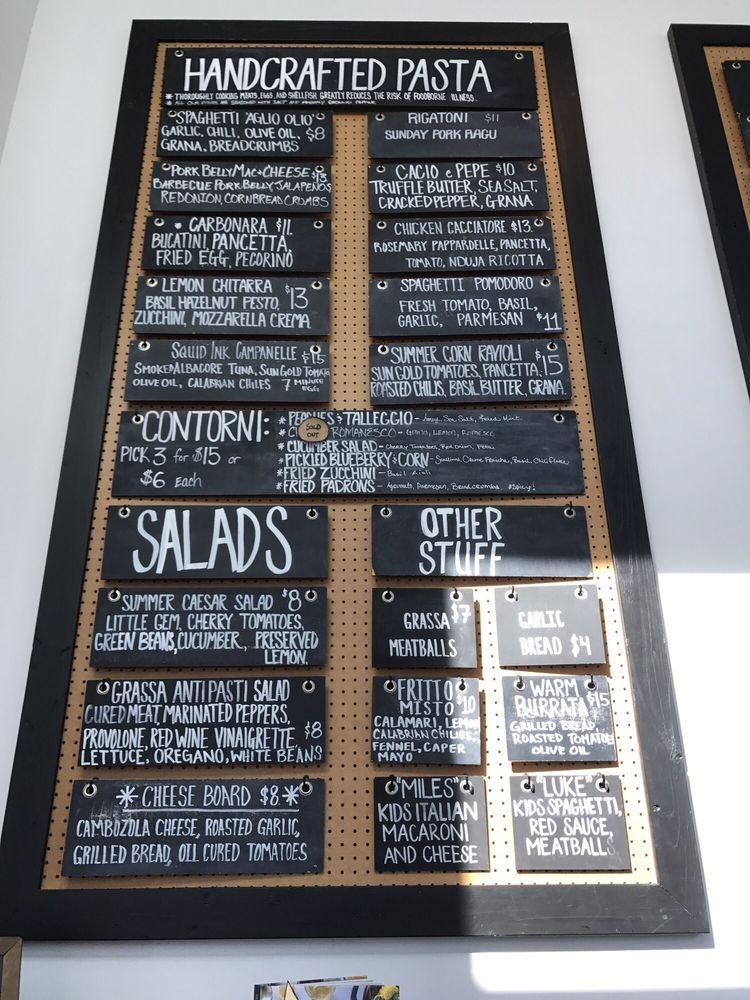 HANDCRAFTED PASTA
* THOROUGHLY COOKING MEATS, EGGS, AND SHELLFISH GREATLY REDUCES THE RISK OF FOODBORNE ILLNESS.
* ALL OUR PASTAS ARE SEASONED WITH SALT AND FRESHLY GROUND PEPPER
SPAGHETTI 'AGLIO OLIO'
GARLIC, CHILI, OLIVE OIL, $8
GRANA, BREADCRUMBS
RIGATONI $11
SUNDAY PORK RAGU
PORK BELLY MAC & CHEESE $13
BARBECUE PORK BELLY, JALAPENOS
RED ONION, CORNBREAD CRUMBS
CACIO e PEPE $10
TRUFFLE BUTTER, SEA SALT,
CRACKED PEPPER, GRANA
CARBONARA $11
BUCATINI, PANCETTA,
FRIED EGG, PECORINO
CHICKEN CACCIATORE $13
ROSEMARY PAPPARDELLE, PANCETTA,
TOMATO, NDUJA RICOTTA
LEMON CHITARRA
BASIL HAZELNUT PESTO, $13
ZUCCHINI, MOZZARELLA CREMA
SPAGHETTI POMODORO
FRESH TOMATO, BASIL,
GARLIC, PARMESAN $11
SQUID INK CAMPANELLE $15
SMOKED ALBACORE TUNA, SUN GOLD TOMATO
OLIVE OIL, CALABRIAN CHILES 7 MINUTE EGG
SUMMER CORN RAVIOLI $15
SUN GOLD TOMATOES, PANCETTA,
ROASTED CHILIS, BASIL BUTTER, GRANA
CONTORNI:
PICK 3 for $15 or
$6 Each
* PEACHES & TALLEGGIO - Honey, Sea Salt, Fried Mint
SOLD OUT
* ROMANESCO - Grana, Lemon, Romesco
* CUCUMBER SALAD - Cherry Tomatoes, Red Onion, Pecorino
* PICKLED BLUEBERRY & CORN - Scallions, Creme Fraiche, Basil, Chili Flake
* FRIED ZUCCHINI - Basil Aioli
* FRIED PADRONS - Agrumato, Parmesan, Breadcrumbs *Spicy!
SALADS
OTHER
STUFF
SUMMER CAESAR SALAD $8
LITTLE GEM, CHERRY TOMATOES,
GREEN BEANS, CUCUMBER, PRESERVED
LEMON.
GRASSA $7
MEATBALLS
GARLIC
BREAD $4
GRASSA ANTIPASTI SALAD
CURED MEAT, MARINATED PEPPERS,
PROVOLONE, RED WINE VINAIGRETTE, $8
LETTUCE, OREGANO, WHITE BEANS
FRITTO
MISTO $10
CALAMARI, LEMON
CALABRIAN CHILIES,
FENNEL, CAPER
MAYO
WARM
BURRATA $15
GRILLED BREAD,
ROASTED TOMATOE
OLIVE OIL
* CHEESE BOARD $8 *
CAMBOZOLA CHEESE, ROASTED GARLIC,
GRILLED BREAD, OIL CURED TOMATOES
"MILES"
KIDS ITALIAN
MACARONI
AND CHEESE
"LUKE"
KIDS SPAGHETTI,
RED SAUCE,
MEATBALLS